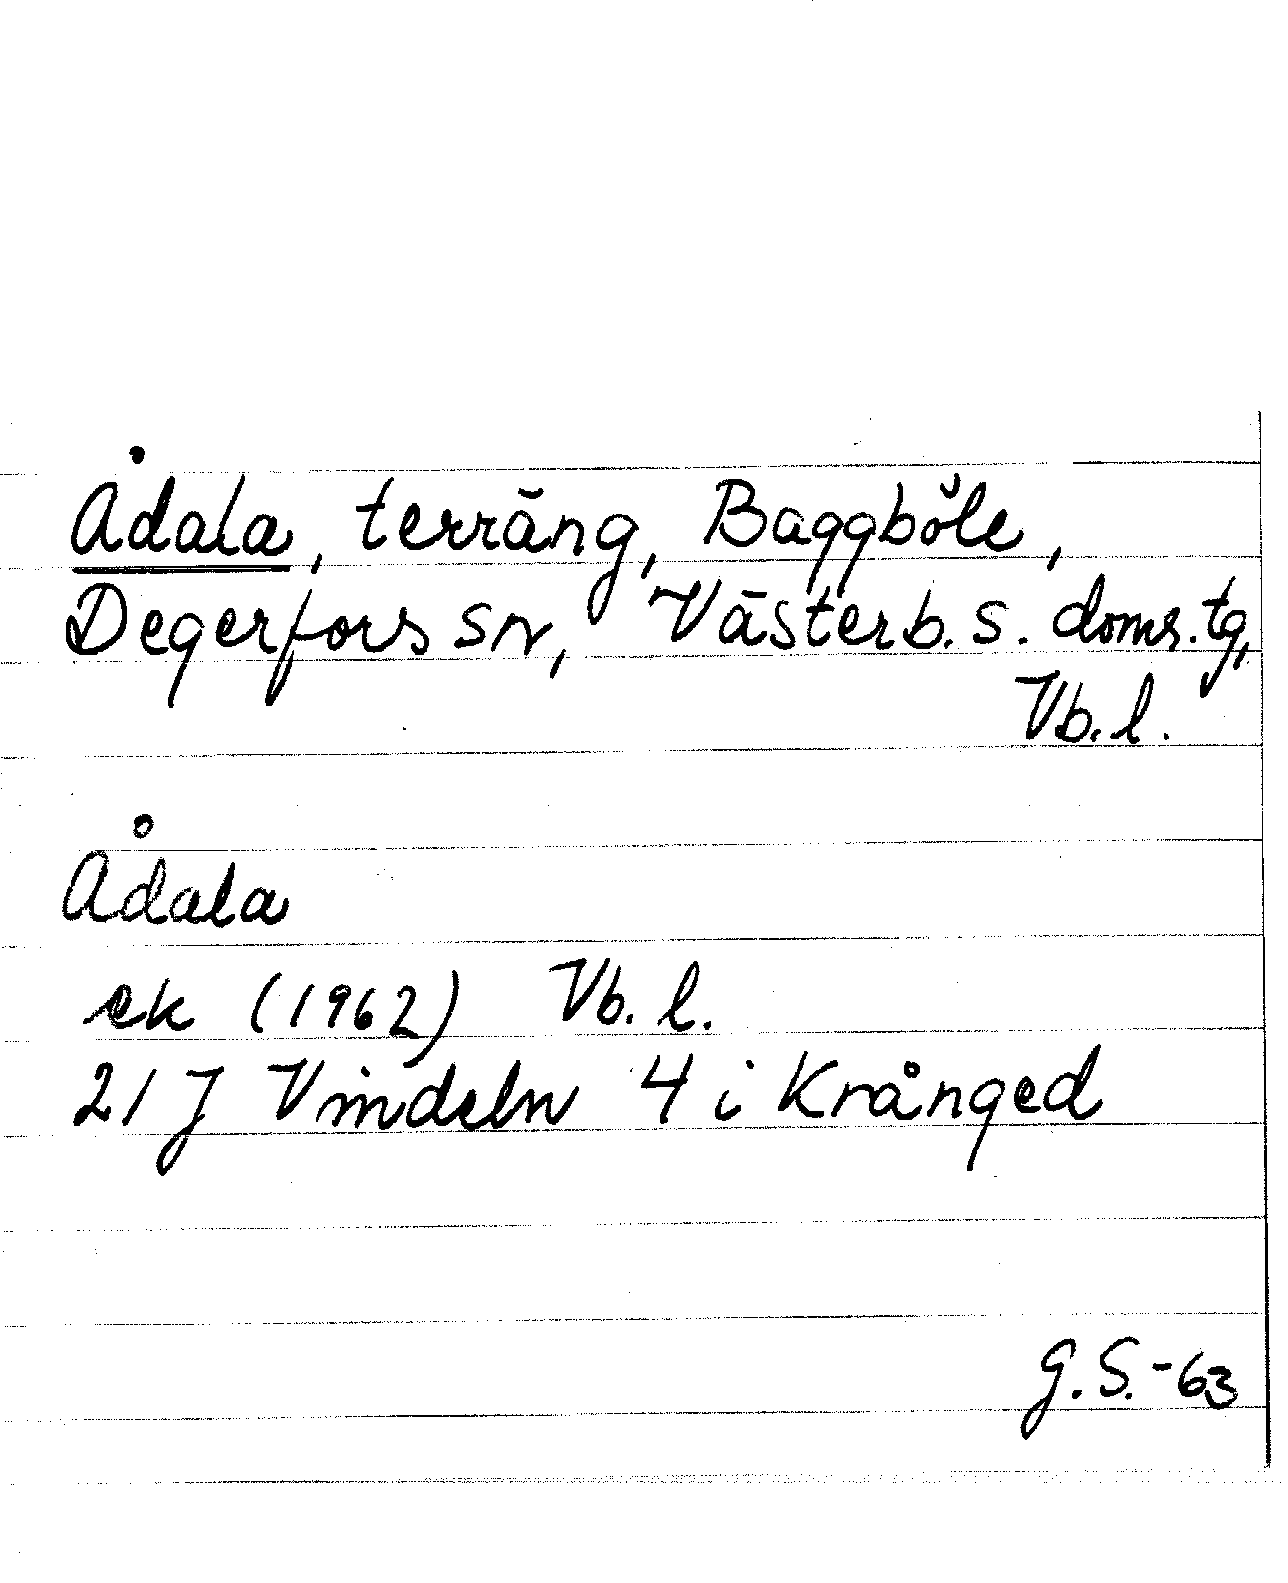 Ådala, terräng, Baggböle,
Degerfors sn, Västerb. s. doms. tg,
Vb. l.
Ådala
ek (1962) Vb. l.
21 J Vindeln 4 i Krånged
G. S. -63